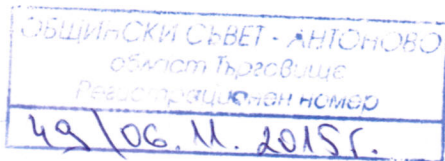 ОБЩИНСКИ СЪВЕТ - АНТОНОВО
област Търговище
Регистрационен номер
49 / 06. 11. 2015 г.